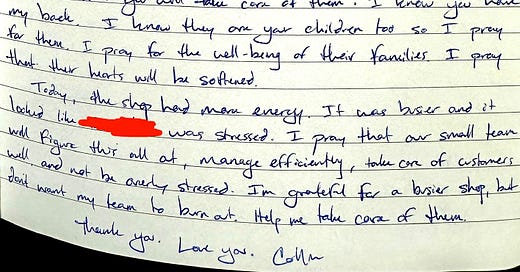 you will take care of them. I know you have
my back. I know they are your children too so I pray
for them. I pray for the well-being of their families. I pray
that their hearts will be softened.
Today, the shop had more energy. It was busier and it
looked like was stressed. I pray that our small team
will figure this all out, manage efficiently, take care of customers
well and not be overly stressed. I'm grateful for a busier shop, but
don't want my team to burn out. Help me take care of them.
Thank you. Love you. Collin